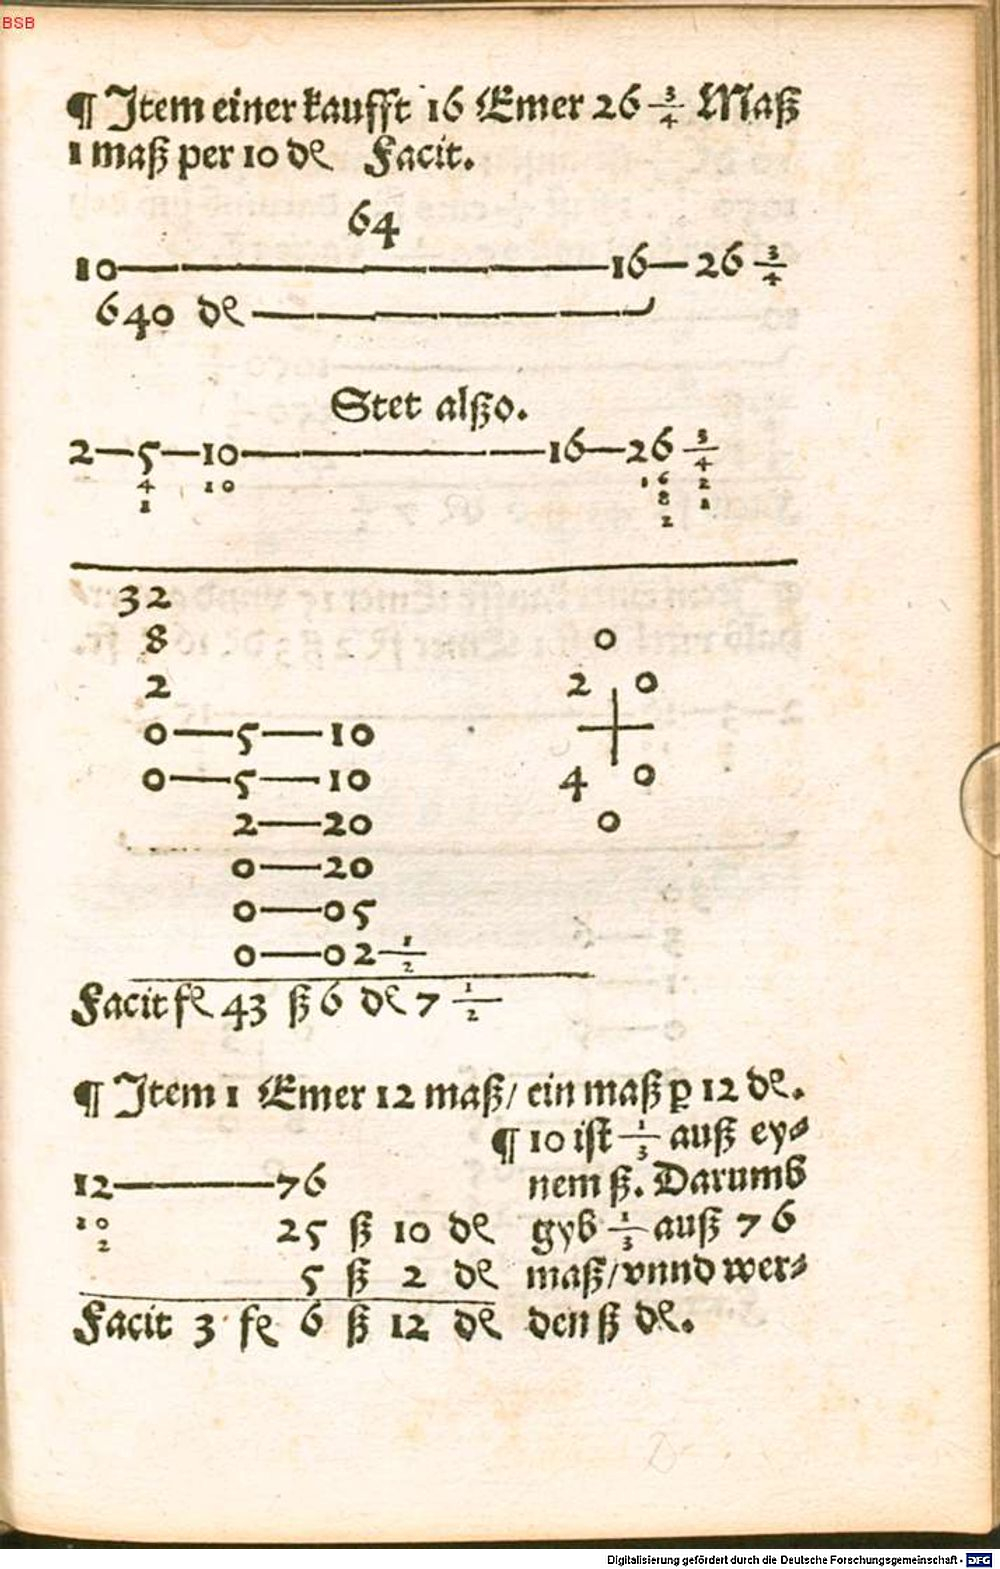 BSB
¶ Jtem einer kaufft 16 Emer 26 3/4 Maß
1 maß per 10 de Facit.
64
10 — 16 — 26 3/4
640 de —
Stet alßo.
2 — 5 — 10 — 16 — 26 3/4
4 10 1 6 2
1 8 1
2
32
8 0
2 2 0
0 — 5 — 10
0 — 5 — 10 4 0
2 — 20 0
0 — 20
0 — 05
0 — 02 1/2
Facit fl 43 ß 6 de 7 1/2
¶ Jtem 1 Emer 12 maß/ ein maß ꝑ 12 de.
¶ 10 ist 1/3 auß ey⸗
12 — 76 nem ß. Darumb
10 25 ß 10 de gyb 1/3 auß 76
2
5 ß 2 de maß/ vnnd wer⸗
Facit 3 fl 6 ß 12 de den ß de.
Digitalisierung gefördert durch die Deutsche Forschungsgemeinschaft - DFG